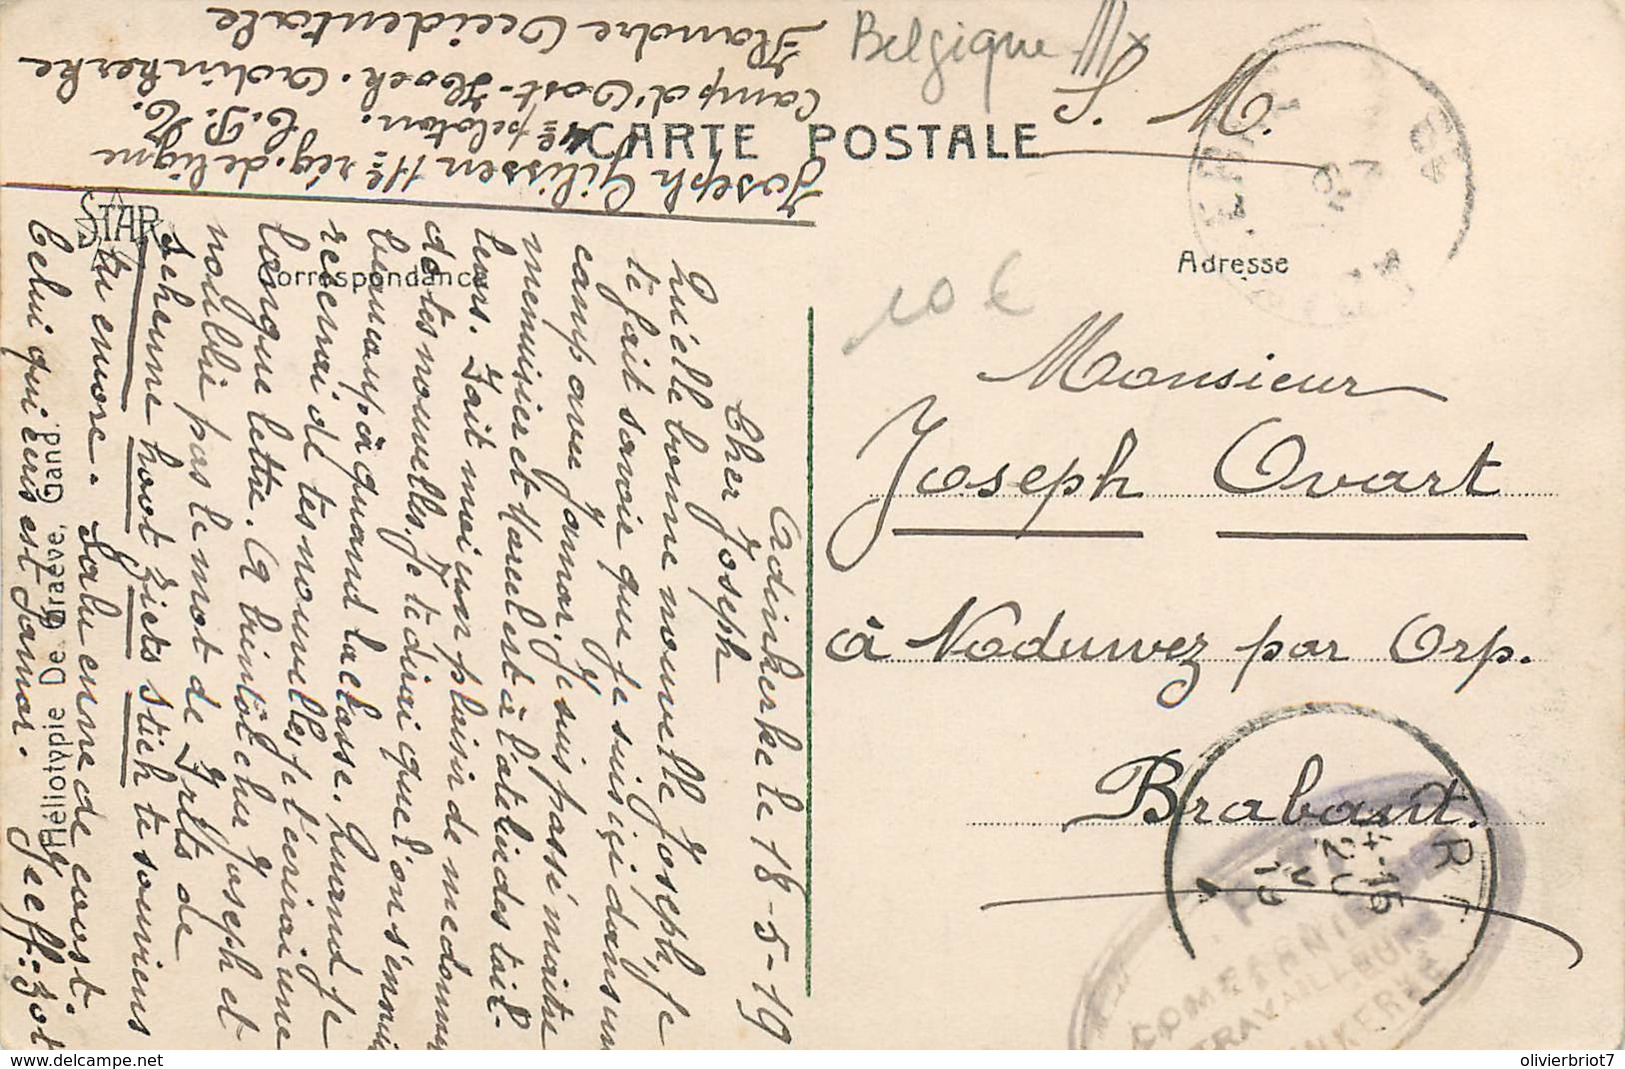 Belgique
S. M.
CARTE POSTALE
Correspondance
Adresse
10 €
Monsieur
Joseph Ovart
à Noduwez par Orp.
Brabant.
4-15
20
V
19
COMPAGNIE
TRAVAILLEURS
Joseph Gilissen 11e rég. de ligne
4e peloton. C. P. R.
Camp d'Oost-Hoek. Adinkerke
Flandre Occidentale
Adinkerke le 18-5-19
Cher Joseph
Qu'elle bonne nouvelle Joseph, je
te fait savoir que je suis içi dans un
camp avec Jamar. Je suis passé maitre
menuisier et Marcel est à l'atelier des tail-
leurs. Fait moi un plaisir de me donner
de tes nouvelles, je te dirai que l'on s'ennuie
beaucoup. à quand la classe. Quand je
recevrai de tes nouvelles je t'écrirai une
longue lettre. A bientôt cher Joseph et
n'oublie pas le mot de
scheune hoot ziets stich te souviens
tu encore. Salu en me de coust.
Celui qui ecris est Jamar. Jeeff:
STAR
Héliotypie De Graeve, Gand.
olivierbriot7